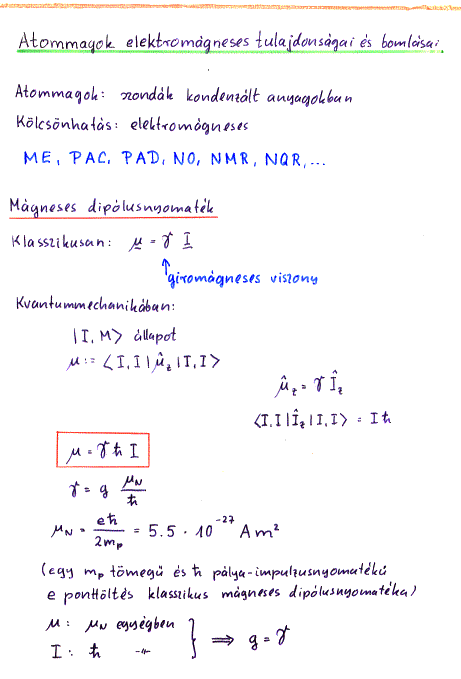 Atommagok elektromágneses tulajdonságai és bomlásai
Atommagok: szondák kondenzált anyagokban
Kölcsönhatás: elektromágneses
ME, PAC, PAD, NO, NMR, NQR, ...
Mágneses dipólusnyomaték
Klasszikusan: μ = γ I
giromágneses viszony
Kvantummechanikában:
|I, M> állapot
μ := <I, I | μ̂z | I, I>
μ̂z = γ Îz
<I, I | Îz | I, I> = I ħ
μ = γ ħ I
γ = g μN/ħ
μN = eħ/2mp = 5.5 · 10⁻²⁷ A m²
(egy mp tömegű és ħ pálya-impulzusnyomatékú
e ponttöltés klasszikus mágneses dipólusnyomatéka)
μ: μN egységben
I: ħ -〃- ⟹ g = γ